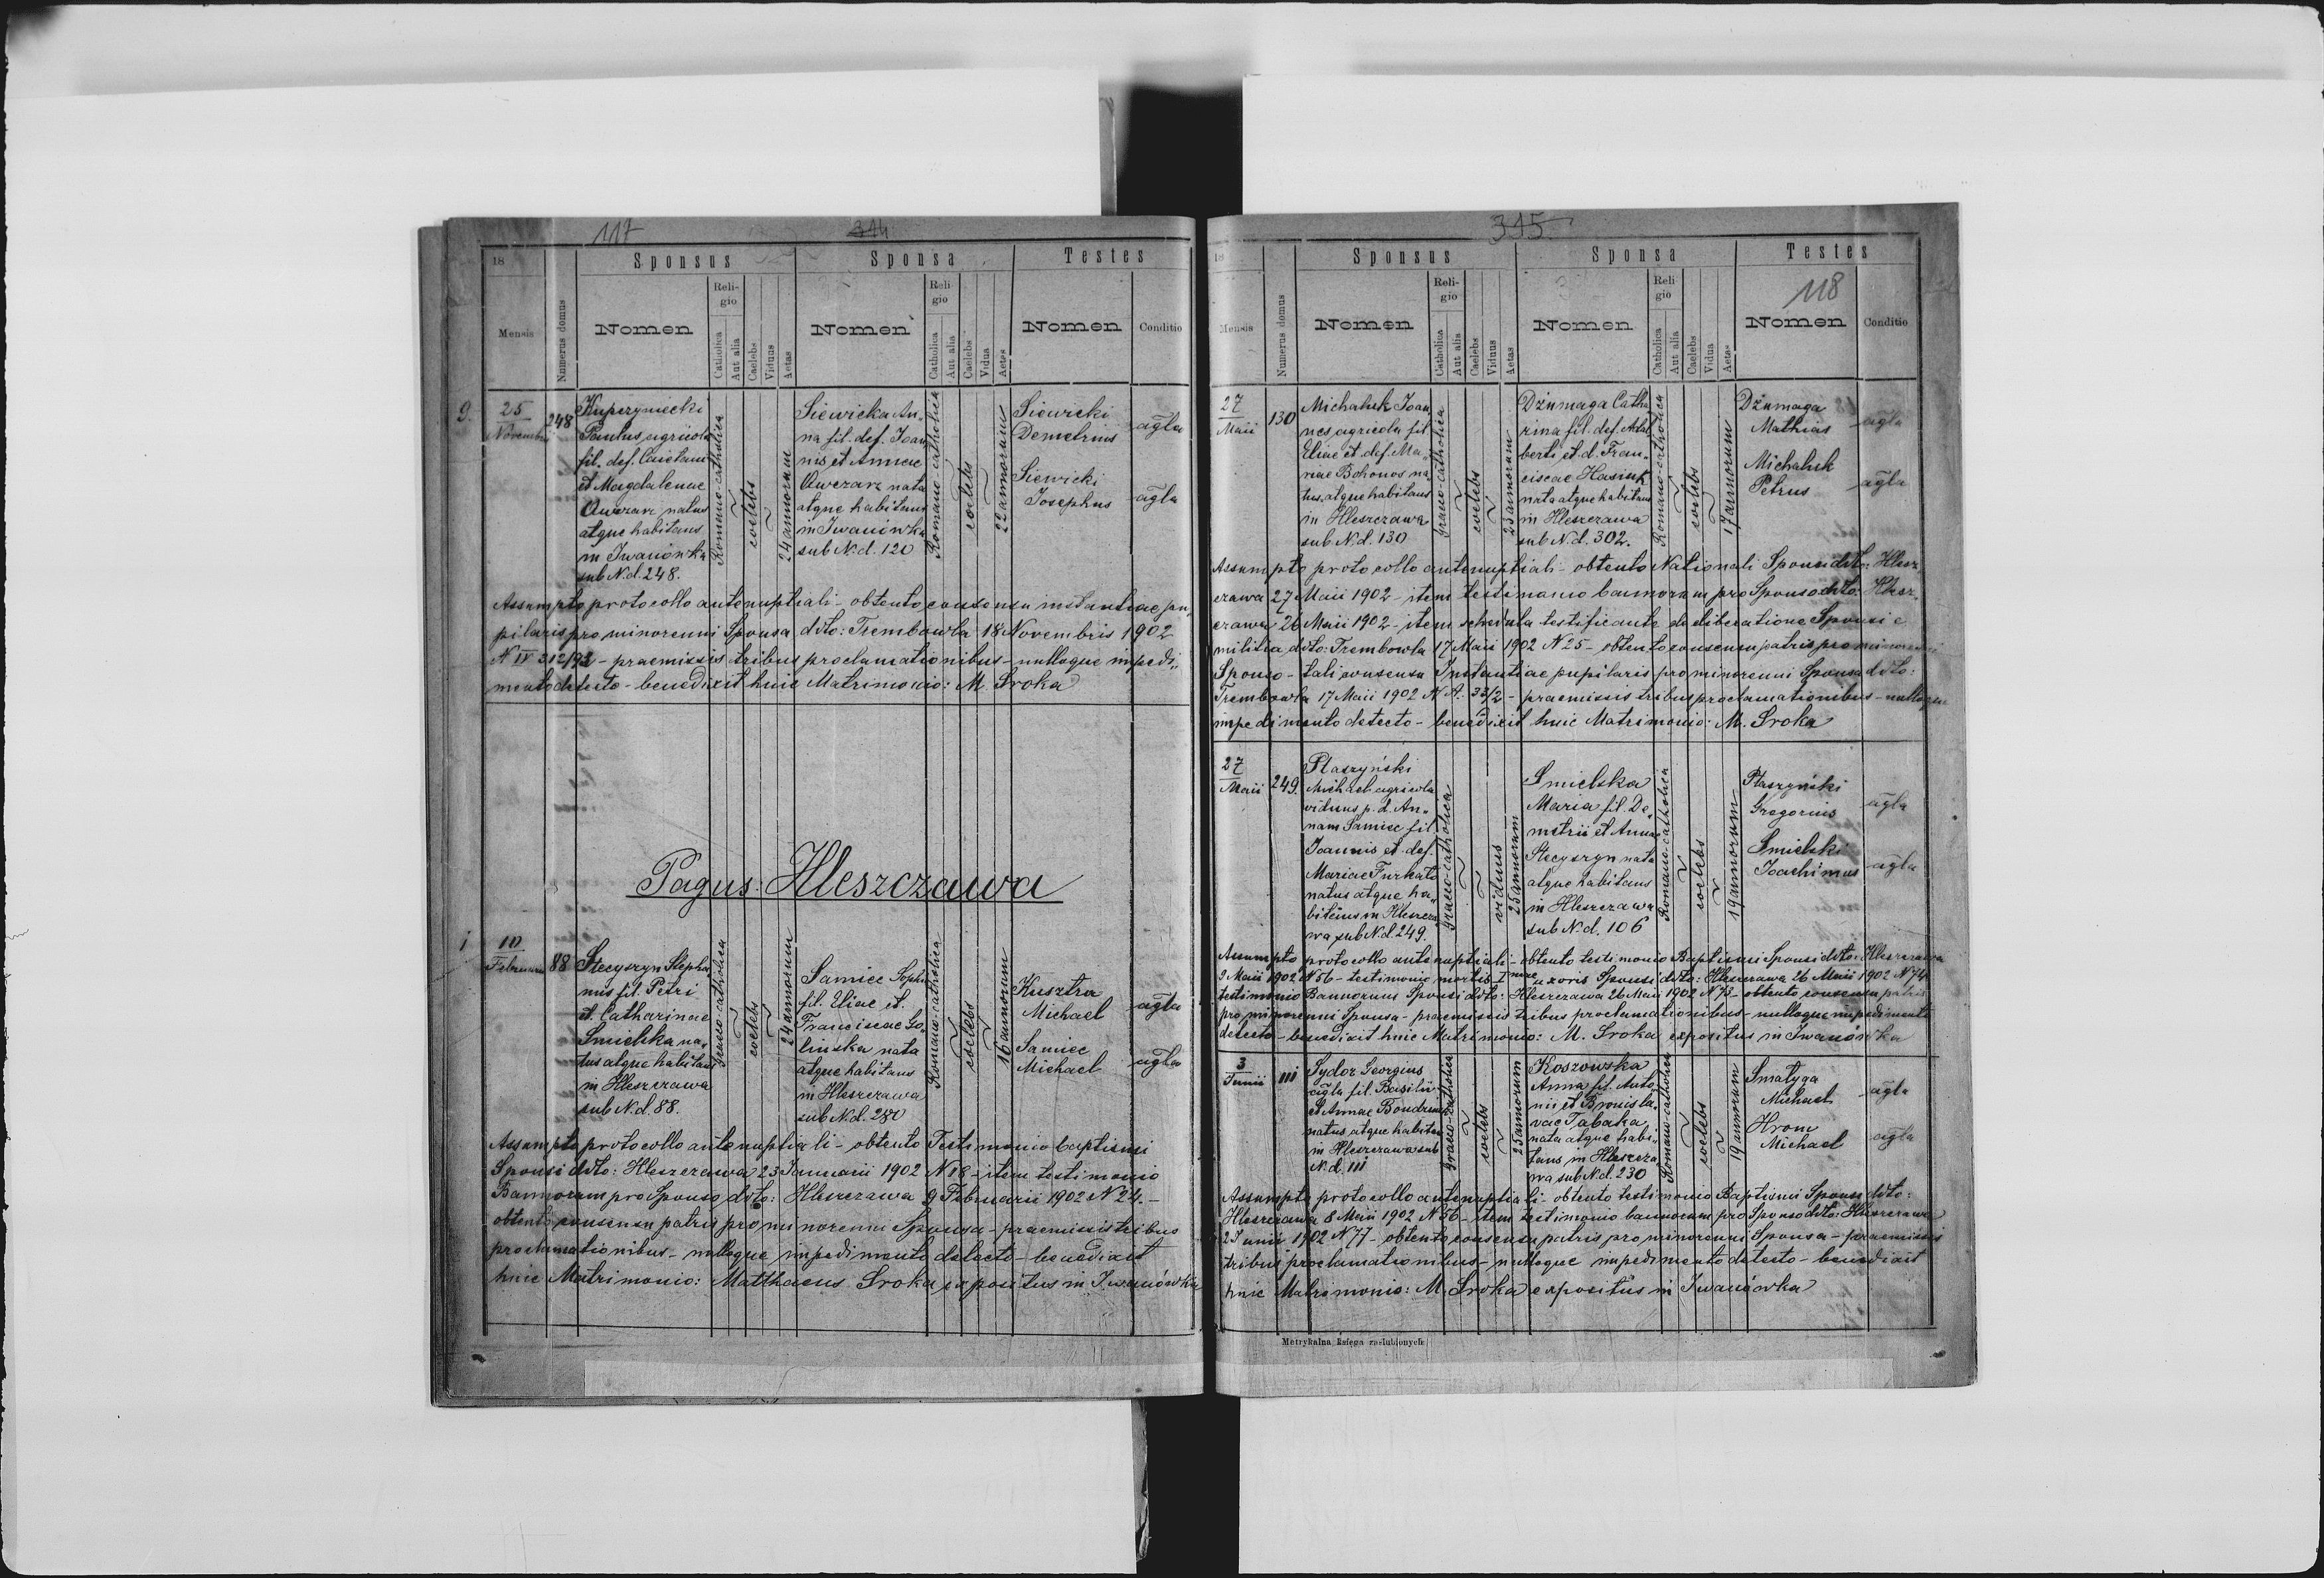 117
314
18
Sponsus
Sponsa
Testes
Mensis
Numerus domus
Nomen
Religio
Catholica
Aut alia
Caelebs
Viduus
Aetas
Nomen
Religio
Catholica
Aut alia
Caelebs
Vidua
Aetas
Nomen
Conditio
9.
25
Novembris
248
Kupczyniecki
Paulus, agricola
fil. def. Caietani
et Magdalenae
Owczarz natus
atque habitans
in Iwanówka
sub N.d. 248.
Romano-catholica
coelebs
24 annorum
Siewicka An„
na fil. def. Joan
nis et Annae
Owczarz nata
atque habitans
in Iwanówka
sub N.d. 120
Romano-catholica
coelebs
22 annorum
Siewicki
Demetrius
agla
Siewicki
Josephus
agla
Assumpto protocollo antenuptiali - obtento consensu instantiae pu„
pilaris pro minorenni Sponsa ddto: Trembowla 18 Novembris 1902
N IV 312/93 - praemissis tribus proclamationibus - nulloque impedi„
mento detecto - benedixit huic Matrimonio: M. Sroka
Pagus: Hleszczawa
1
10
Februarii
88
Stecyszyn Stepha„
nus fil. Petri
et Catharinae
Smielska na„
tus atque habitans
in Hleszczawa
sub N.d. 88.
Graeco-catholica
coelebs
24 annorum
Samiec Sophia
fil. Eliae et
Franciscae Go„
linska nata
atque habitans
in Hleszczawa
sub N.d. 280
Romano-catholica
coelebs
16 annorum
Kusztra
Michael
agla
Samiec
Michael
agla
Assumpto protocollo antenuptiali - obtento Testimonio baptismi
Sponsi ddto: Hleszczawa 23 Januarii 1902 N 18 - item testimonio
Bannorum pro Sponso ddto: Hleszczawa 9 Februarii 1902 N 24. -
obtento consensu patris pro minorenni Sponsa - praemissis tribus
proclamationibus - nulloque impedimento detecto - benedixit
huic Matrimonio: Matthaeus Sroka expositus in Iwanówka
315
18
Sponsus
Sponsa
Testes
118
Mensis
Numerus domus
Nomen
Religio
Catholica
Aut alia
Caelebs
Viduus
Aetas
Nomen
Religio
Catholica
Aut alia
Caelebs
Vidua
Aetas
Nomen
Conditio
27
Maii
130
Michaluk Joan„
nes agricola fil
Eliae et def. Ma„
riae Bohonos na
tus atque habitans
in Hleszczawa
sub N.d. 130
Graeco-catholica
coelebs
23 annorum
Dżumaga Catha
rina fil. def. Adal
berti et d. Fran„
ciscae Hasiuk
nata atque habitans
in Hleszczawa
sub N.d. 302.
Romano-catholica
coelebs
17 annorum
Dżumaga
Mathias
agla
Michaluk
Petrus
agla
Assumpto protocollo antenuptiali - obtento Nationali Sponsi ddto: Hlesz„
czawa 27 Maii 1902 - item testimonio bannorum pro Sponso ddto: Hlesz„
czawa 26 Maii 1902 - item schedula testificante de liberatione Sponsi e
militia ddto: Trembowla 17 Maii 1902 N 25 - obtento consensu patris pro minorenni
Sponso - tali consensu Instantiae pupilaris pro minorenni Sponsa ddto:
Trembowla 17 Maii 1902 N A. 32/2 - praemissis tribus proclamationibus - nulloque
impedimento detecto - benedixit huic Matrimonio: M. Sroka
27
Maii
249.
Ptaszyński
Michael agricola
viduus p. d. An„
nam Samiec fil
Joannis et def.
Mariae Furkato
natus atque ha„
bitans in Hleszcza
wa sub N.d. 249.
Graeco-catholica
viduus
25 annorum
Smielska
Maria fil. De„
metrii et Annae
Stecyszyn nata
atque habitans
in Hleszczawa
sub N.d. 106
Romano-catholica
coelebs
19 annorum
Ptaszyński
Gregorius
agla
Smielski
Joachimus
agla
Assumpto protocollo antenuptiali - obtento testimonio Baptismi Sponsi ddto: Hleszczawa
9 Maii 1902 N 56 - testimonio mortis I mae uxoris Sponsi ddto: Hleszczawa 26 Maii 1902 N 74
testimonio Bannorum Sponsi ddto: Hleszczawa 26 Maii 1902 N 73 - obtento consensu patris
pro minorenni Sponsa - praemissis tribus proclamationibus - nulloque impedimento
detecto - benedixit huic Matrimonio: M. Sroka expositus in Iwanówka
3
Junii
111
Sydor Georgius
agla fil. Basilii
et Annae Bondruk
natus atque habitans
in Hleszczawa sub
N.d. 111
Graeco-catholica
coelebs
25 annorum
Koszowska
Anna fil. Anto„
nii et Bronisla„
vae Tabaka
nata atque habi„
tans in Hleszcza
wa sub N.d. 230
Romano-catholica
coelebs
19 annorum
Smatyga
Michael
agla
Hrom
Michael
agla
Assumpto protocollo antenuptiali - obtento testimonio Baptismi Sponsi ddto:
Hleszczawa 8 Maii 1902 N 56 - item testimonio bannorum pro Sponso ddto: Hleszczawa
2 Junii 1902 N 77 - obtento consensu patris pro minorenni Sponsa - praemissis
tribus proclamationibus - nulloque impedimento detecto - benedixit
huic Matrimonio: M. Sroka expositus in Iwanówka
Metrykalna księga zaślubionych.